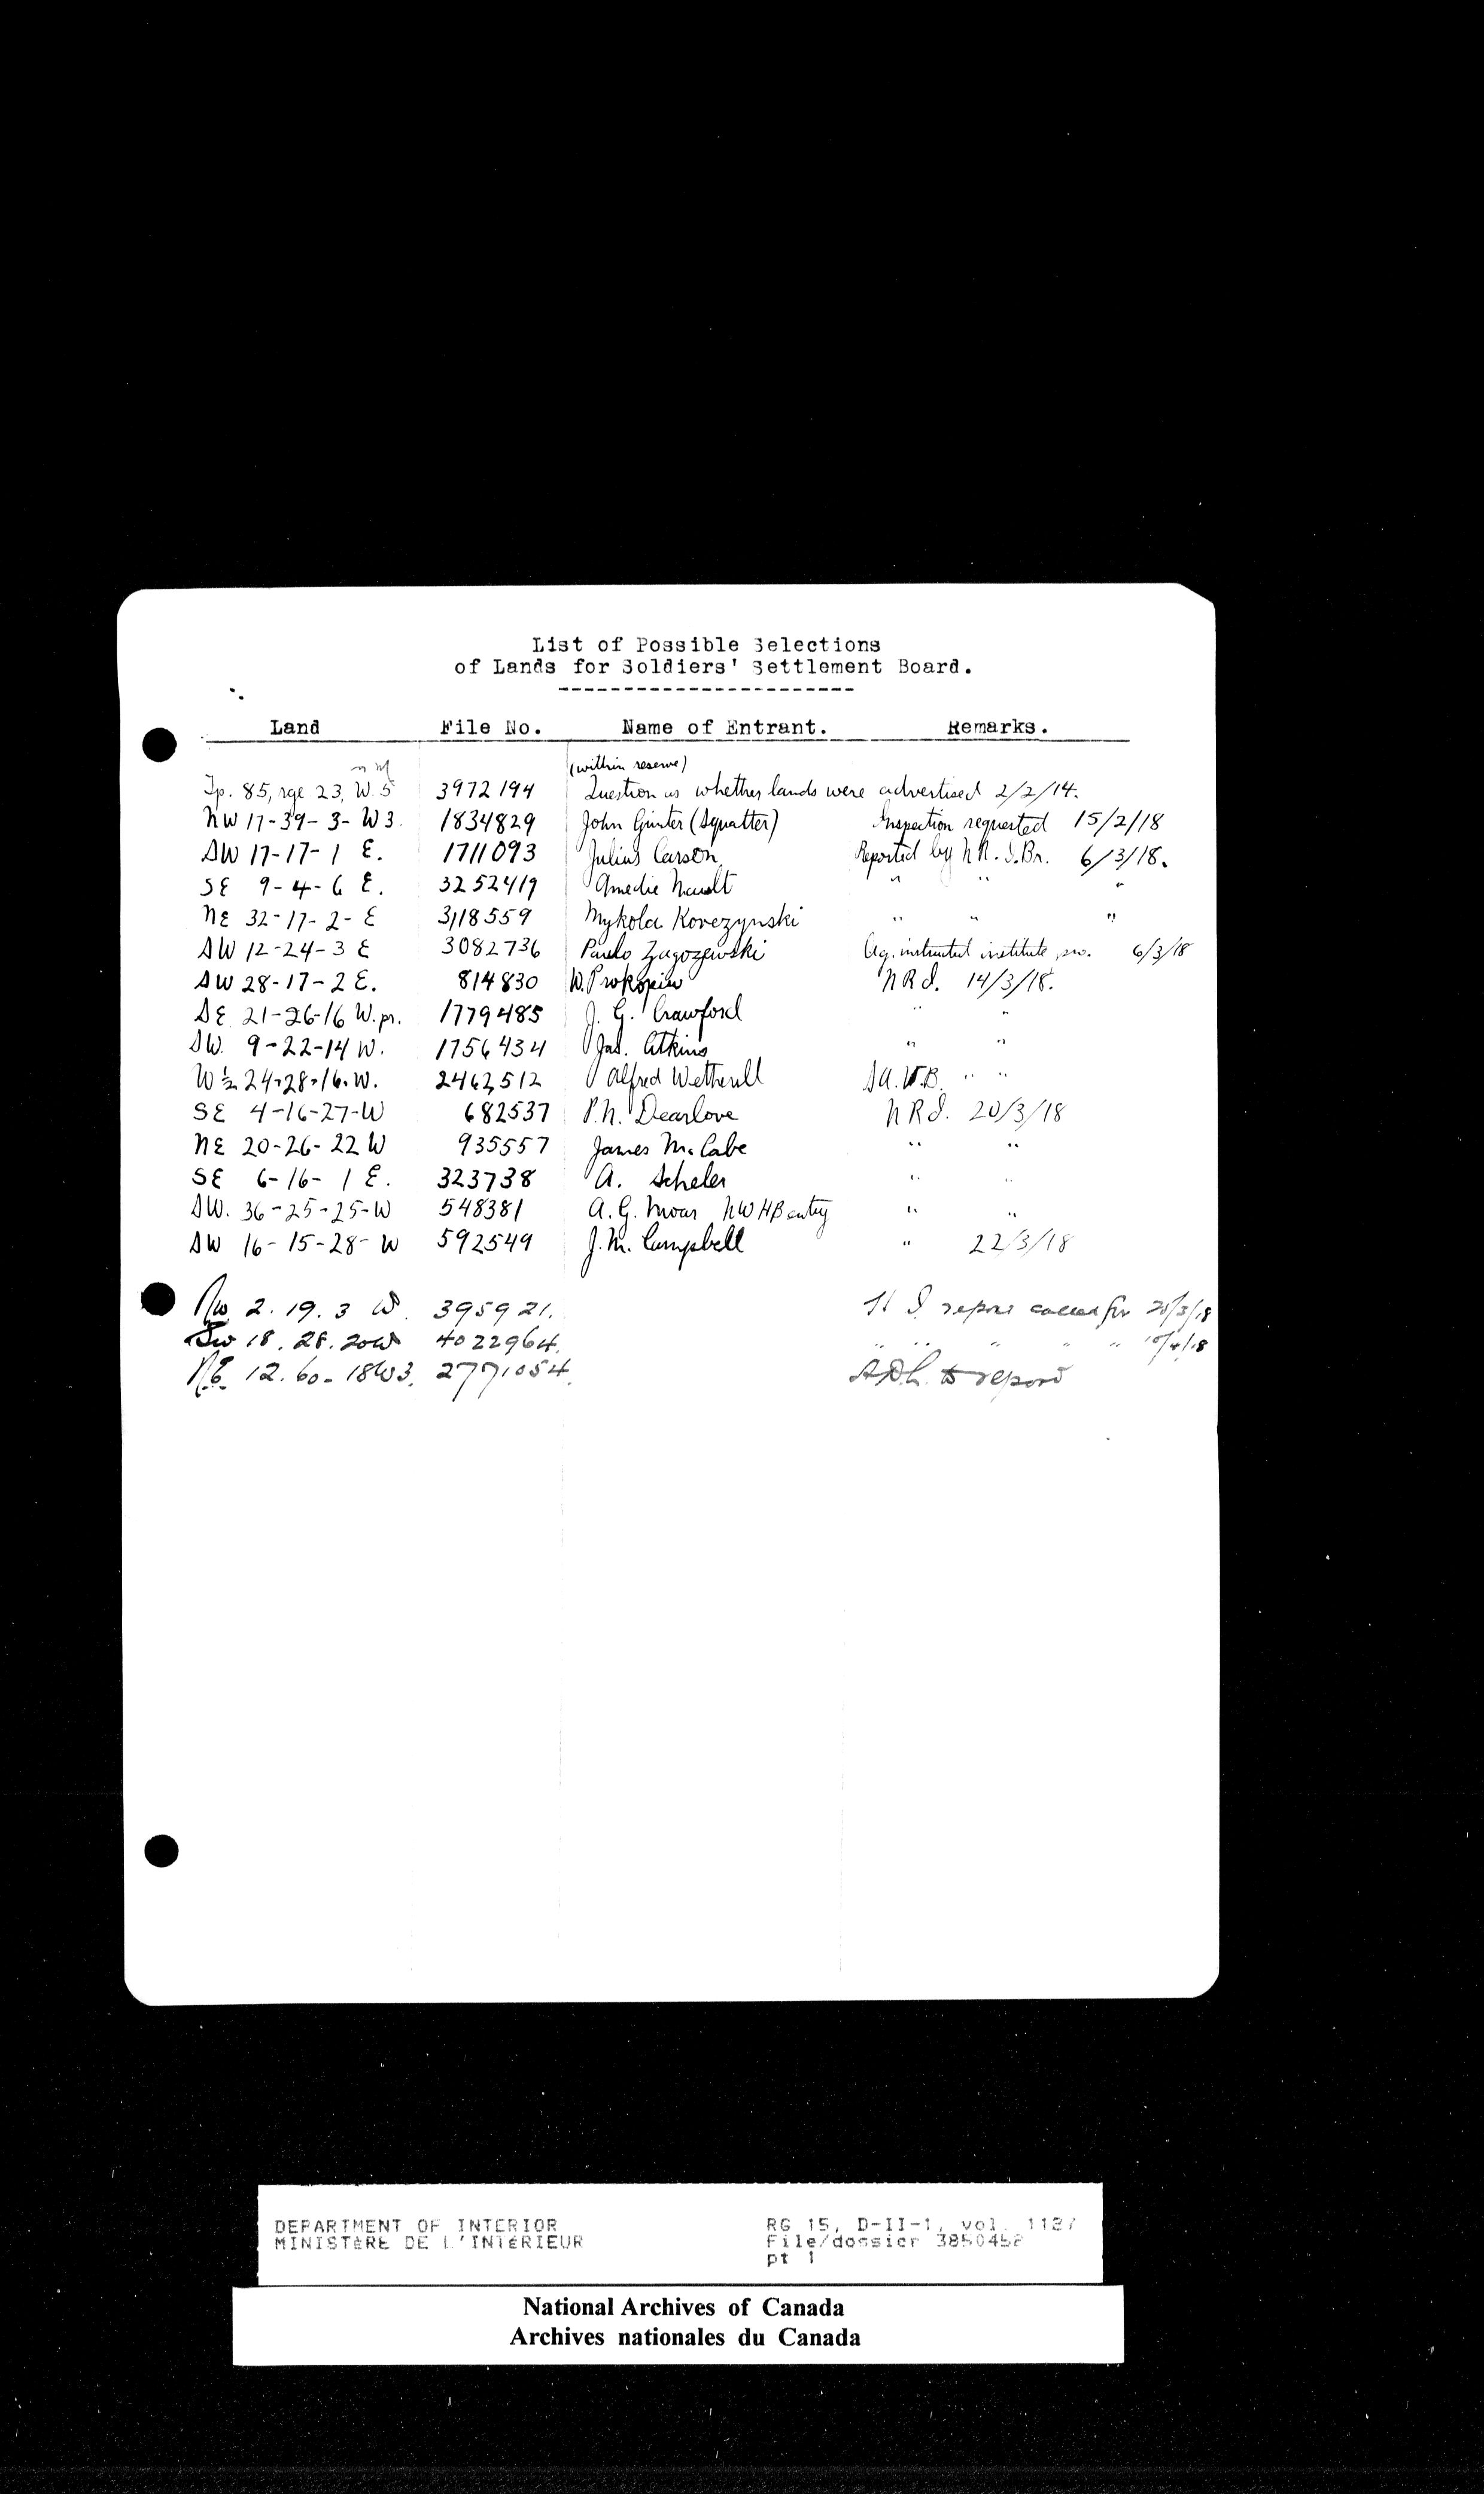 List of Possible Selections
of Lands for Soldiers' Settlement Board.
-----------------------
Land File No. Name of Entrant. Remarks.
(within reserve)
Tp. 85, rge 23, W. 5 3972194 Question as whether lands were advertised 2/2/14.
NW 17-39-3-W3. 1834829 John Ginter (Squatter) Inspection requested 15/2/18
SW 17-17-1 E. 1711093 Julius Carson Reported by N.R.I.Br. 6/3/18.
SE 9-4-6 E. 3252419 Amedie Nault " " "
NE 32-17-2-E 3118559 Mykola Korezynski " " "
SW 12-24-3 E 3082736 Pawlo Zagozewski Ag. instructed institute pro. 6/3/18
SW 28-17-2 E. 814830 W. Prokopiw NRI. 14/3/18.
SE 21-26-16 W.pr. 1779485 J. G. Crawford " "
SW. 9-22-14 W. 1756434 Jas. Atkins " "
W½ 24-28-16-W. 2462512 Alfred Wetherill S.A.V.B. " "
SE 4-16-27-W 682537 P.N. Dearlove NRI. 20/3/18
NE 20-26-22 W 935557 James McCabe " "
SE 6-16-1 E. 323738 A. Scheler " "
SW. 36-25-25-W 548381 A.G. Moar NWHB entry " "
SW 16-15-28-W 592549 J.M. Campbell " 22/3/18
NW 2. 19. 3 W. 395921. H I report called for 20/3/18
SW 18. 28. 20W 4022964. " " " " " 10/4/18
NE. 12. 60-18W3. 2771054. to report
DEPARTMENT OF INTERIOR RG 15, D-II-1, vol. 1137
MINISTÈRE DE L'INTÉRIEUR File/dossier 3850452
pt 1
National Archives of Canada
Archives nationales du Canada